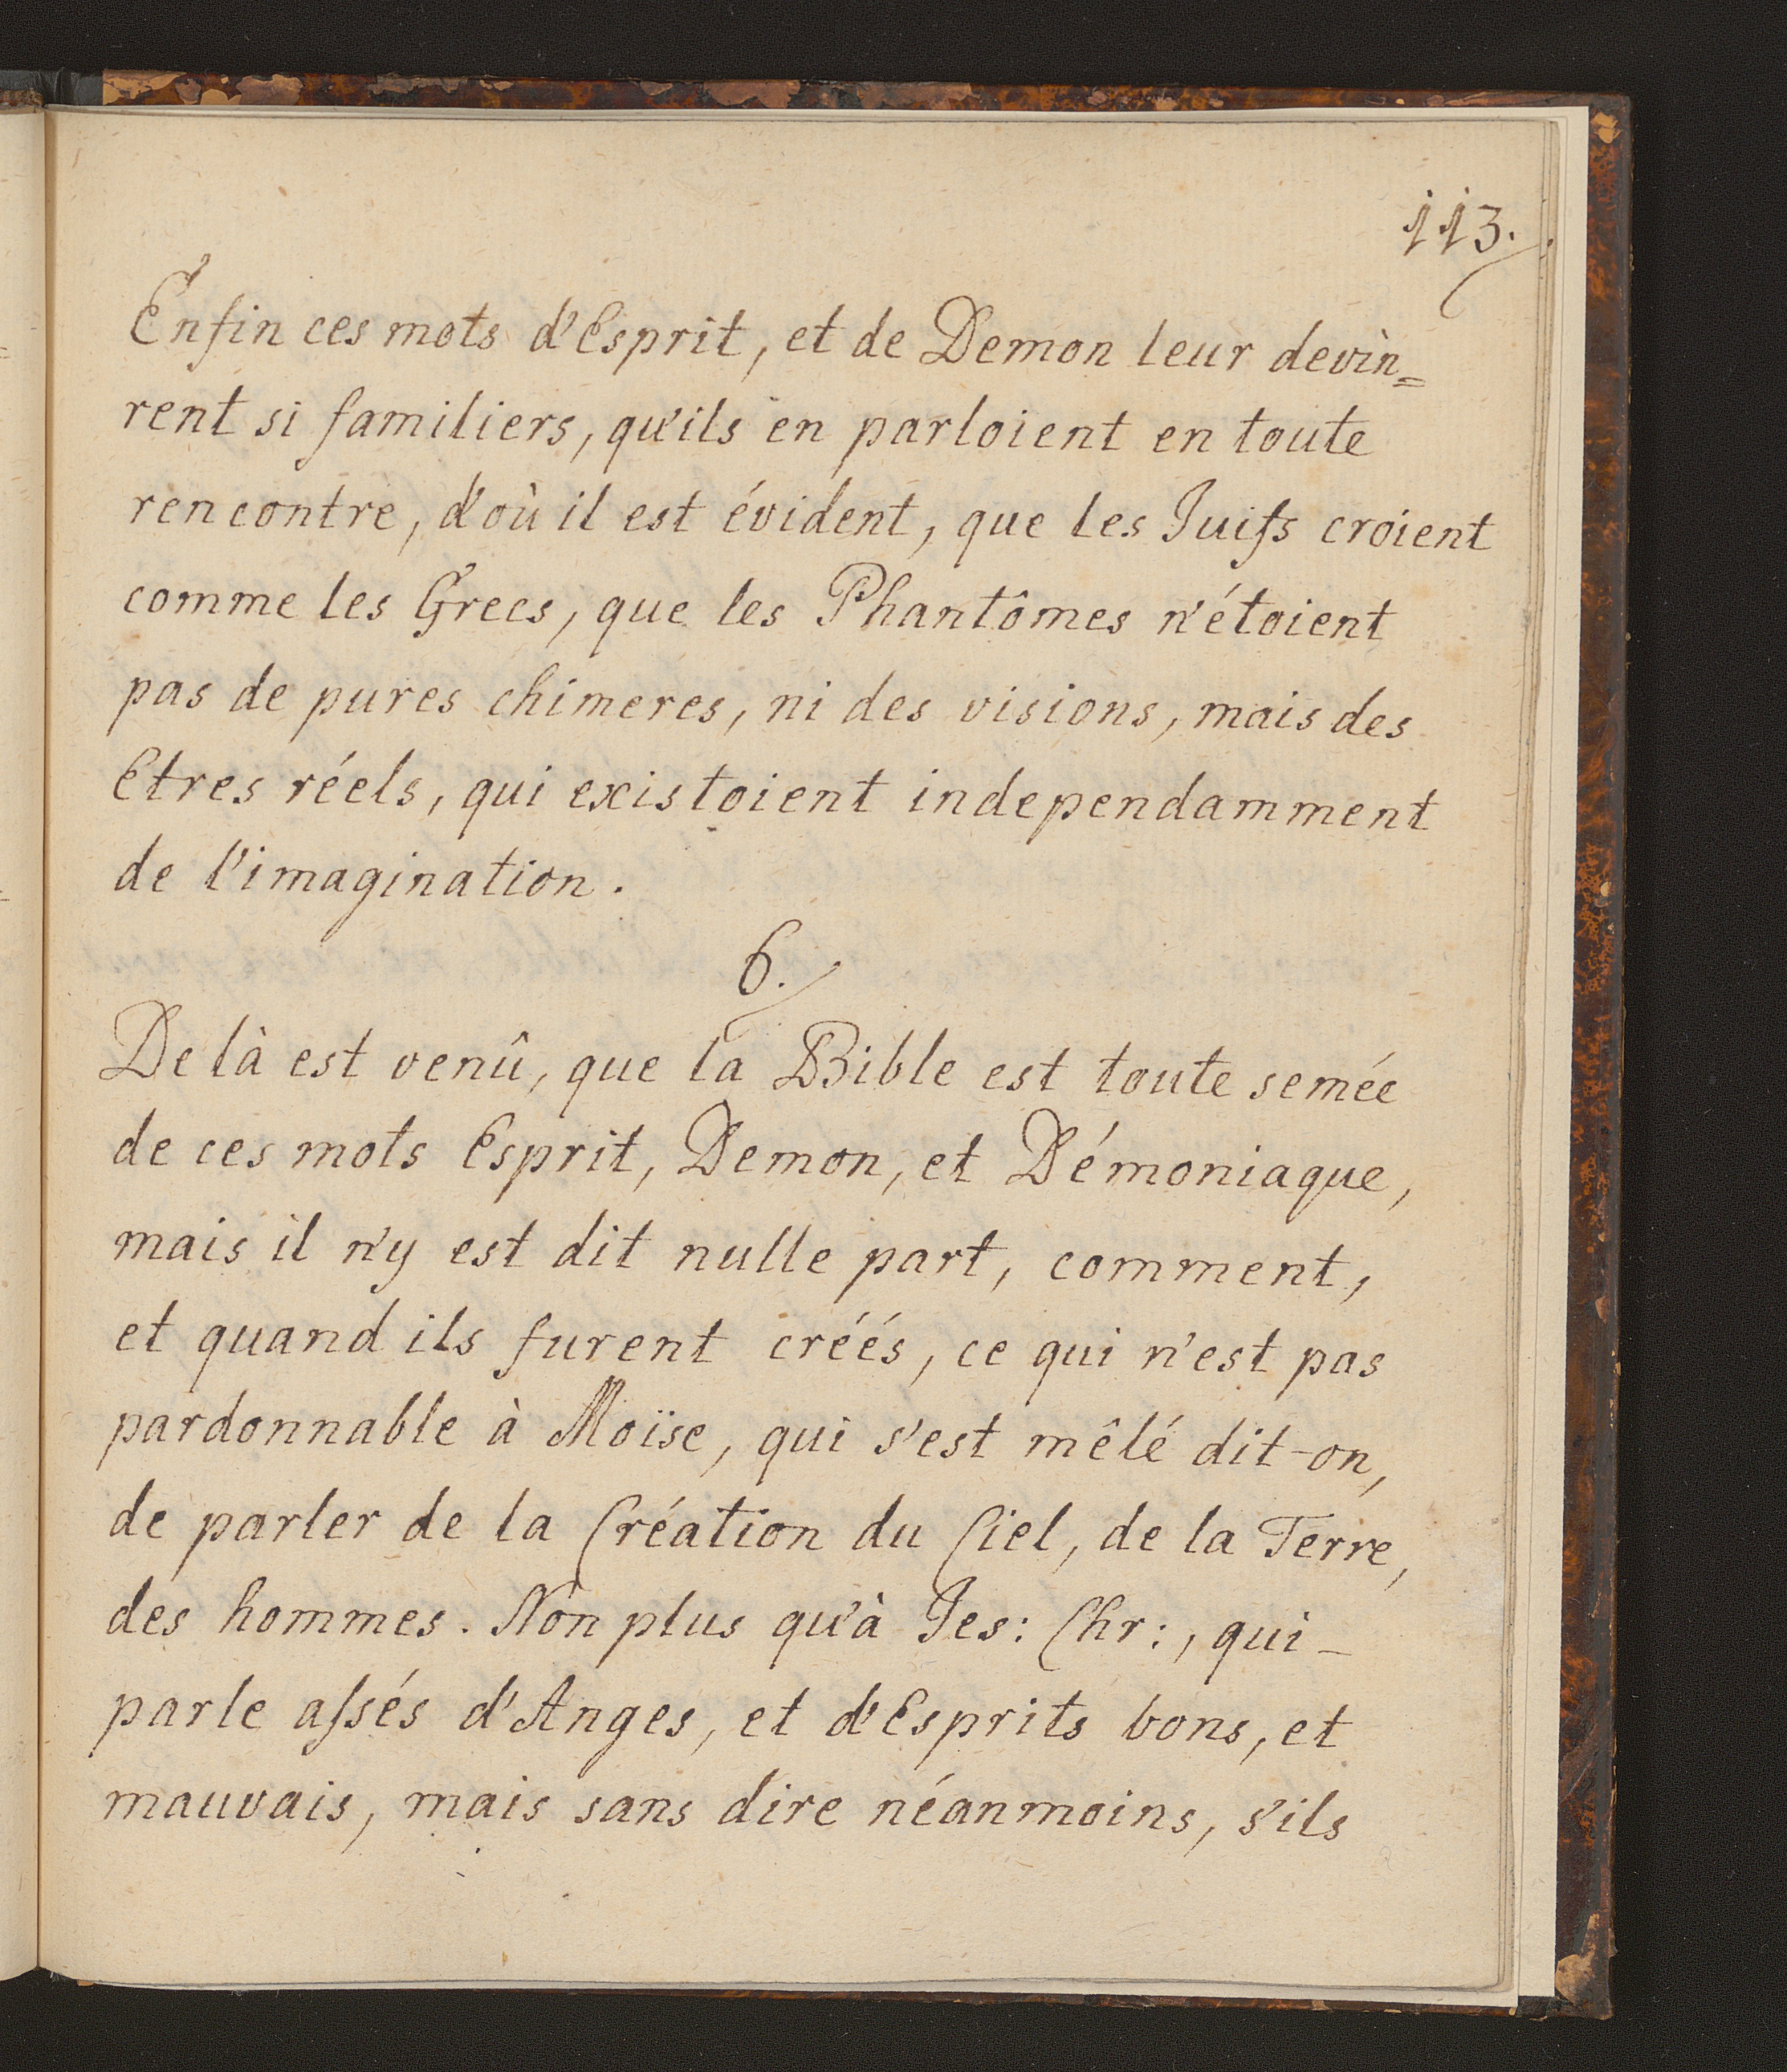 113.
Enfin ces mots d'Esprit, et de Demon leur devin=
rent si familiers, qu'ils en parloient en toute
rencontre, d'où il est évident, que les Juifs croient
comme les Grecs, que les Phantômes n'étoient
pas de pures chimeres, ni des visions, mais des
Etres réels, qui existoient independamment
de l'imagination.
6.
De là est venû, que la Bible est toute semée
de ces mots Esprit, Demon, et Démoniaque,
mais il n'y est dit nulle part, comment,
et quand ils furent créés, ce qui n'est pas
pardonnable à Moïse, qui s'est mêlé dit-on,
de parler de la Création du Ciel, de la Terre,
des hommes. Non plus qu'à Jes: Chr:, qui
parle aſsés d'Anges, et d'Esprits bons, et
mauvais, mais sans dire néanmoins, s'ils